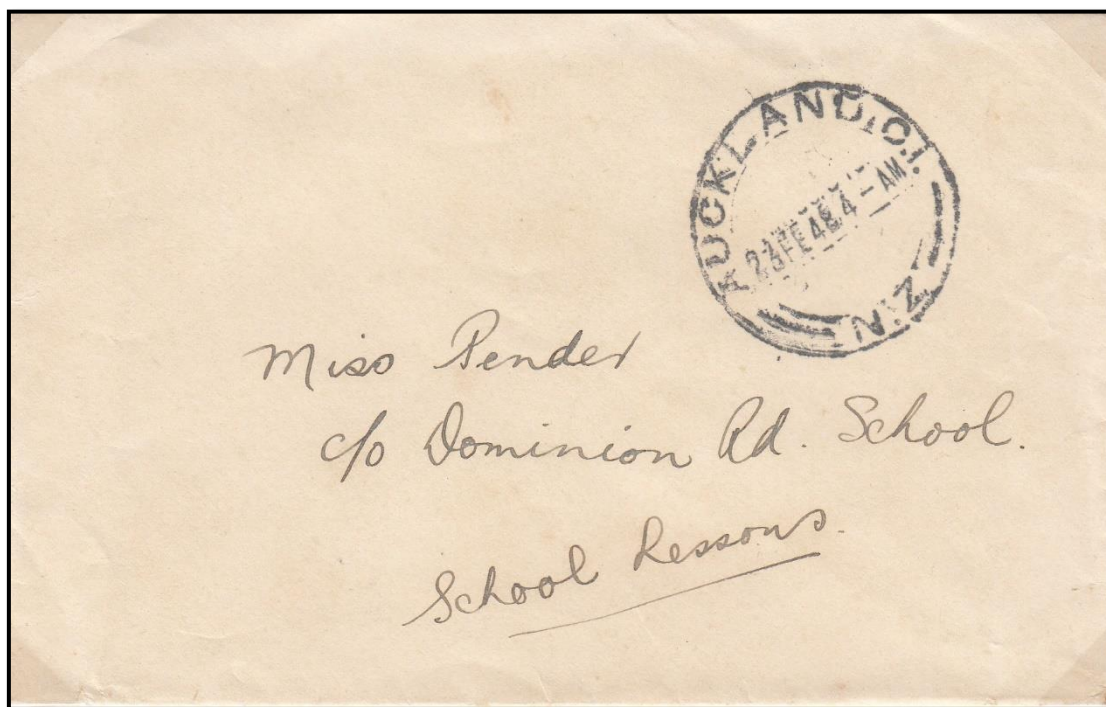 AUCKLAND. C.1.
FE 48 4 - AM
N.Z.
Miss Pender
c/o Dominion Rd. School.
School Lessons.